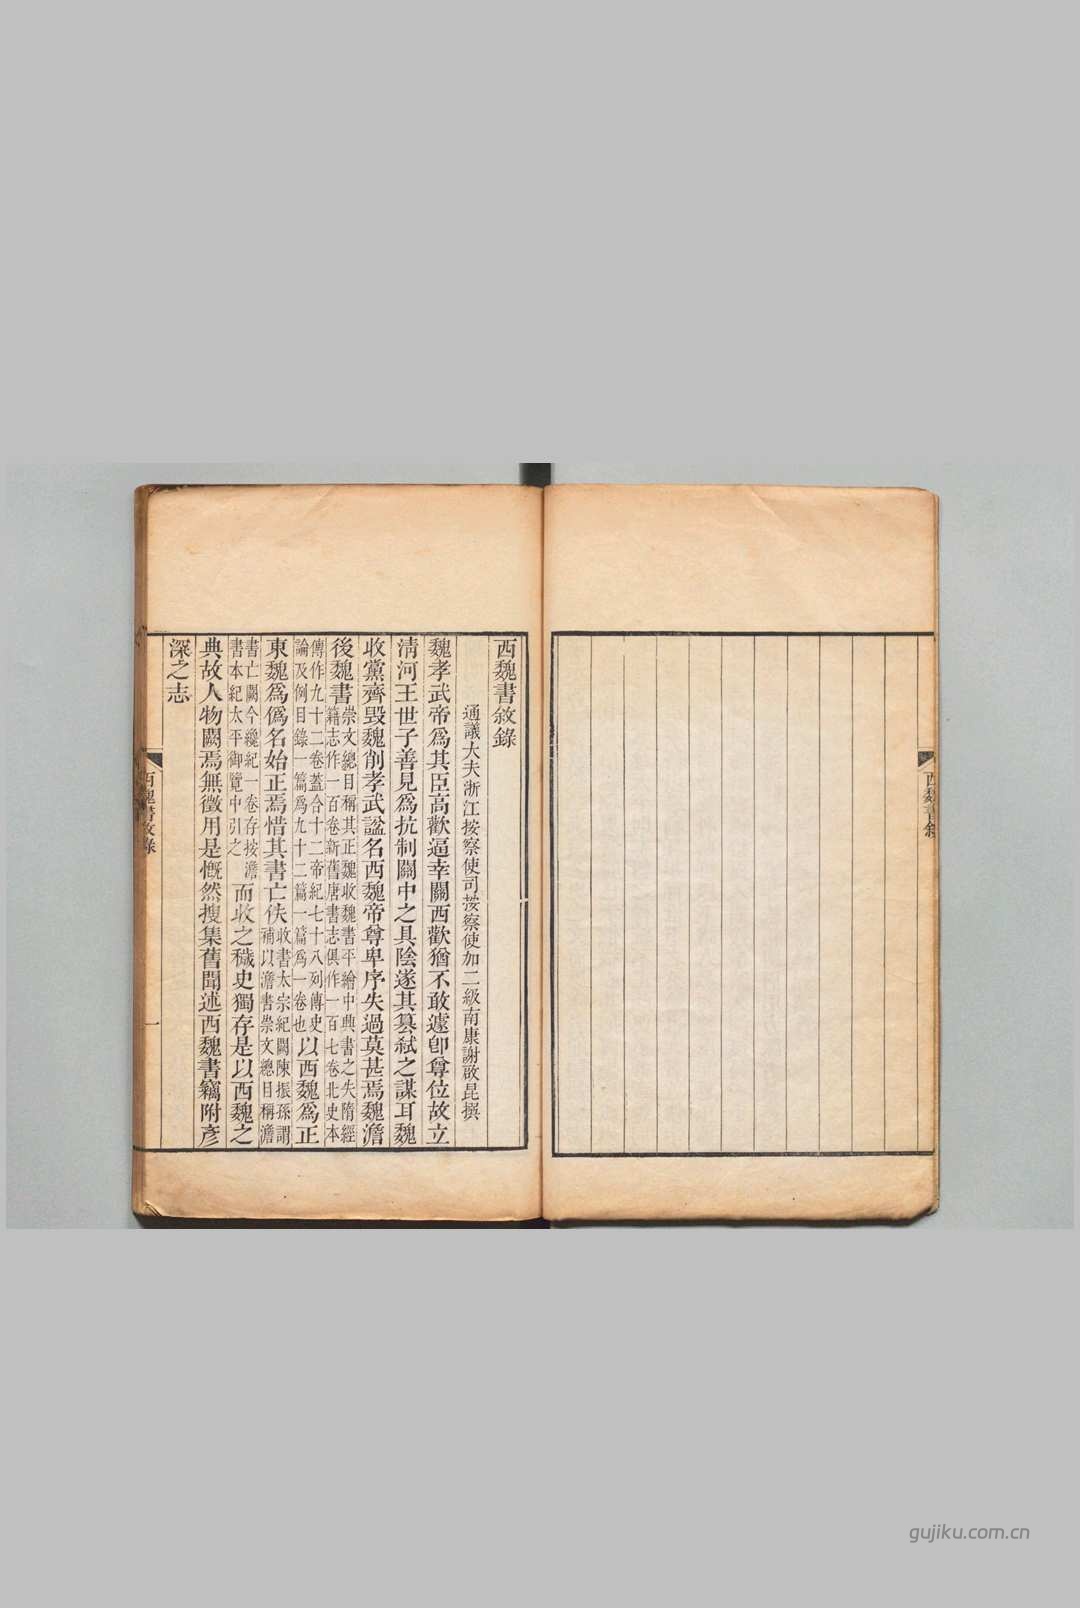 西魏書敘
西魏書敘錄
通議大夫浙江按察使司按察使加二級南康謝啟昆撰
魏孝武帝爲其臣高歡逼幸關西歡猶不敢遽卽尊位故立
淸河王世子善見爲抗制關中之具陰遂其篡弒之謀耳魏
收黨齊毀魏削孝武諡名西魏帝尊卑序失過莫甚焉魏澹
後魏書崇文總目稱其正魏收魏書平繪中興書之失隋經
籍志作一百卷新舊唐書志俱作一百七卷北史本
傳作九十二卷蓋合十二帝紀七十八列傳史
論及例目錄一篇爲九十二篇一篇爲一卷也以西魏爲正
東魏爲僞名始正焉惜其書亡佚收書太宗紀闕陳振孫謂
補以澹書崇文總目稱澹
書亡闕今纔紀一卷存按澹
書本紀太平御覽中引之而收之穢史獨存是以西魏之
典故人物闕焉無徵用是慨然搜集舊聞述西魏書竊附彥
深之志
西魏書敘錄
一
gujiku.com.cn